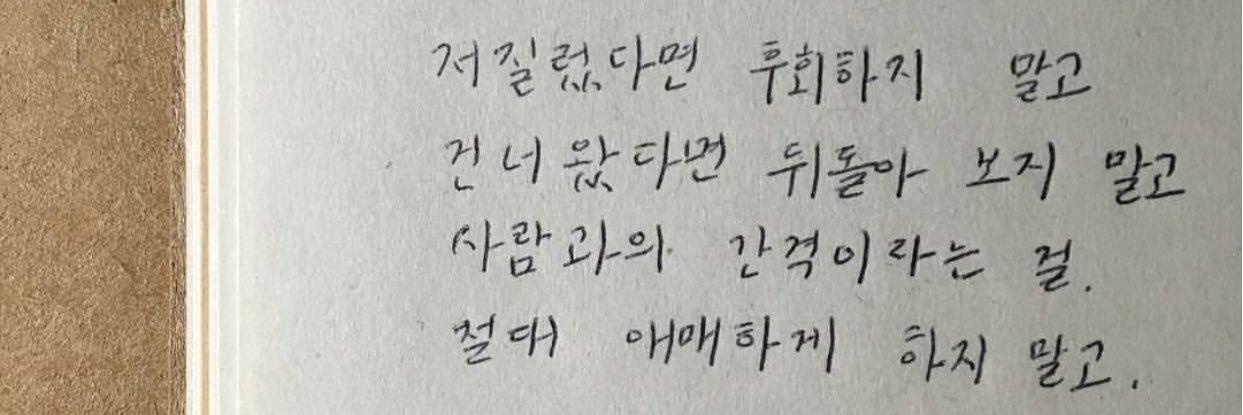 저질렀다면 후회하지 말고
건너왔다면 뒤돌아 보지 말고
사람과의 간격이라는 걸.
절대 애매하게 하지 말고.